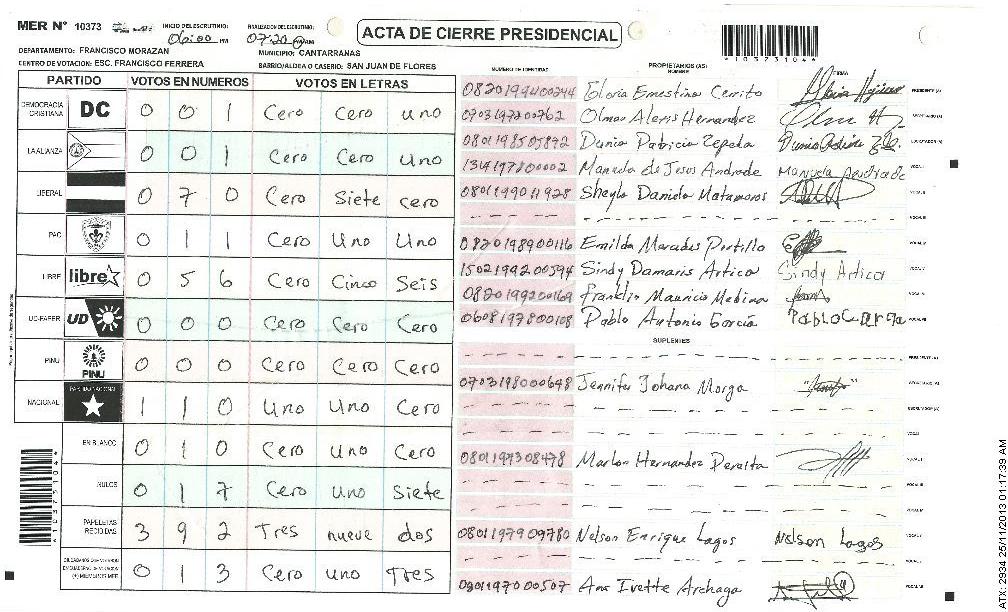 MER N° 10373
INICIO DEL ESCRUTINIO: 06:00 PM
FINALIZACION DEL ESCRUTINIO: 07:20
ACTA DE CIERRE PRESIDENCIAL
*10373104*
DEPARTAMENTO: FRANCISCO MORAZAN
MUNICIPIO: CANTARRANAS
CENTRO DE VOTACION: ESC. FRANCISCO FERRERA
BARRIO/ALDEA O CASERIO: SAN JUAN DE FLORES
PARTIDO VOTOS EN NUMEROS VOTOS EN LETRAS
DEMOCRACIA CRISTIANA DC 0 0 1 Cero Cero uno
LA ALIANZA 0 0 1 Cero Cero Uno
LIBERAL 0 7 0 Cero Siete cero
PAC 0 1 1 Cero Uno Uno
LIBRE libre 0 5 6 Cero Cinco Seis
UD-FAPER UD 0 0 0 Cero Cero Cero
PINU PINU 0 0 0 Cero Cero Cero
NACIONAL PARTIDO NACIONAL 1 1 0 Uno Uno Cero
EN BLANCO 0 1 0 Cero Uno Cero
NULOS 0 1 7 Cero uno siete
PAPELETAS RECIBIDAS 3 9 2 Tres nueve dos
0 1 3 Cero uno Tres
NUMERO DE IDENTIDAD PROPIETARIOS (AS) NOMBRE FIRMA
0820199400244 Gloria Ernestina Cerrito PRESIDENTE (A)
0703197200762 Olman Alexis Hernandez SECRETARIO (A)
0801198505872 Dunia Patricia Zepeda ESCRUTADOR (A)
1314197800002 Manuela de Jesus Andrade Manuela Andrade VOCAL I
0801199011928 Sheyla Daniela Matamoros VOCAL II
VOCAL III
0820198900116 Emilda Mercedes Portillo VOCAL IV
1502199200594 Sindy Damaris Artica Sindy Artica VOCAL V
0820199200169 Franklin Mauricio Medina VOCAL VI
0608197800108 Pablo Antonio García Pablo García VOCAL VII
SUPLENTES
PRESIDENTE (A)
0703198000648 Jennifer Johana Moraga SECRETARIO (A)
ESCRUTADOR (A)
VOCAL I
0801197308478 Marlon Hernandez Peralta
0801197909780 Nelson Enrique Lagos Nelson Lagos
0801197000507 Ana Ivette Archaga
*10373104*
ATX-2934 25/11/2013 01:17:39 AM